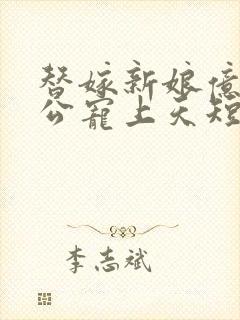 替嫁新娘億
公寵上天短
李志斌